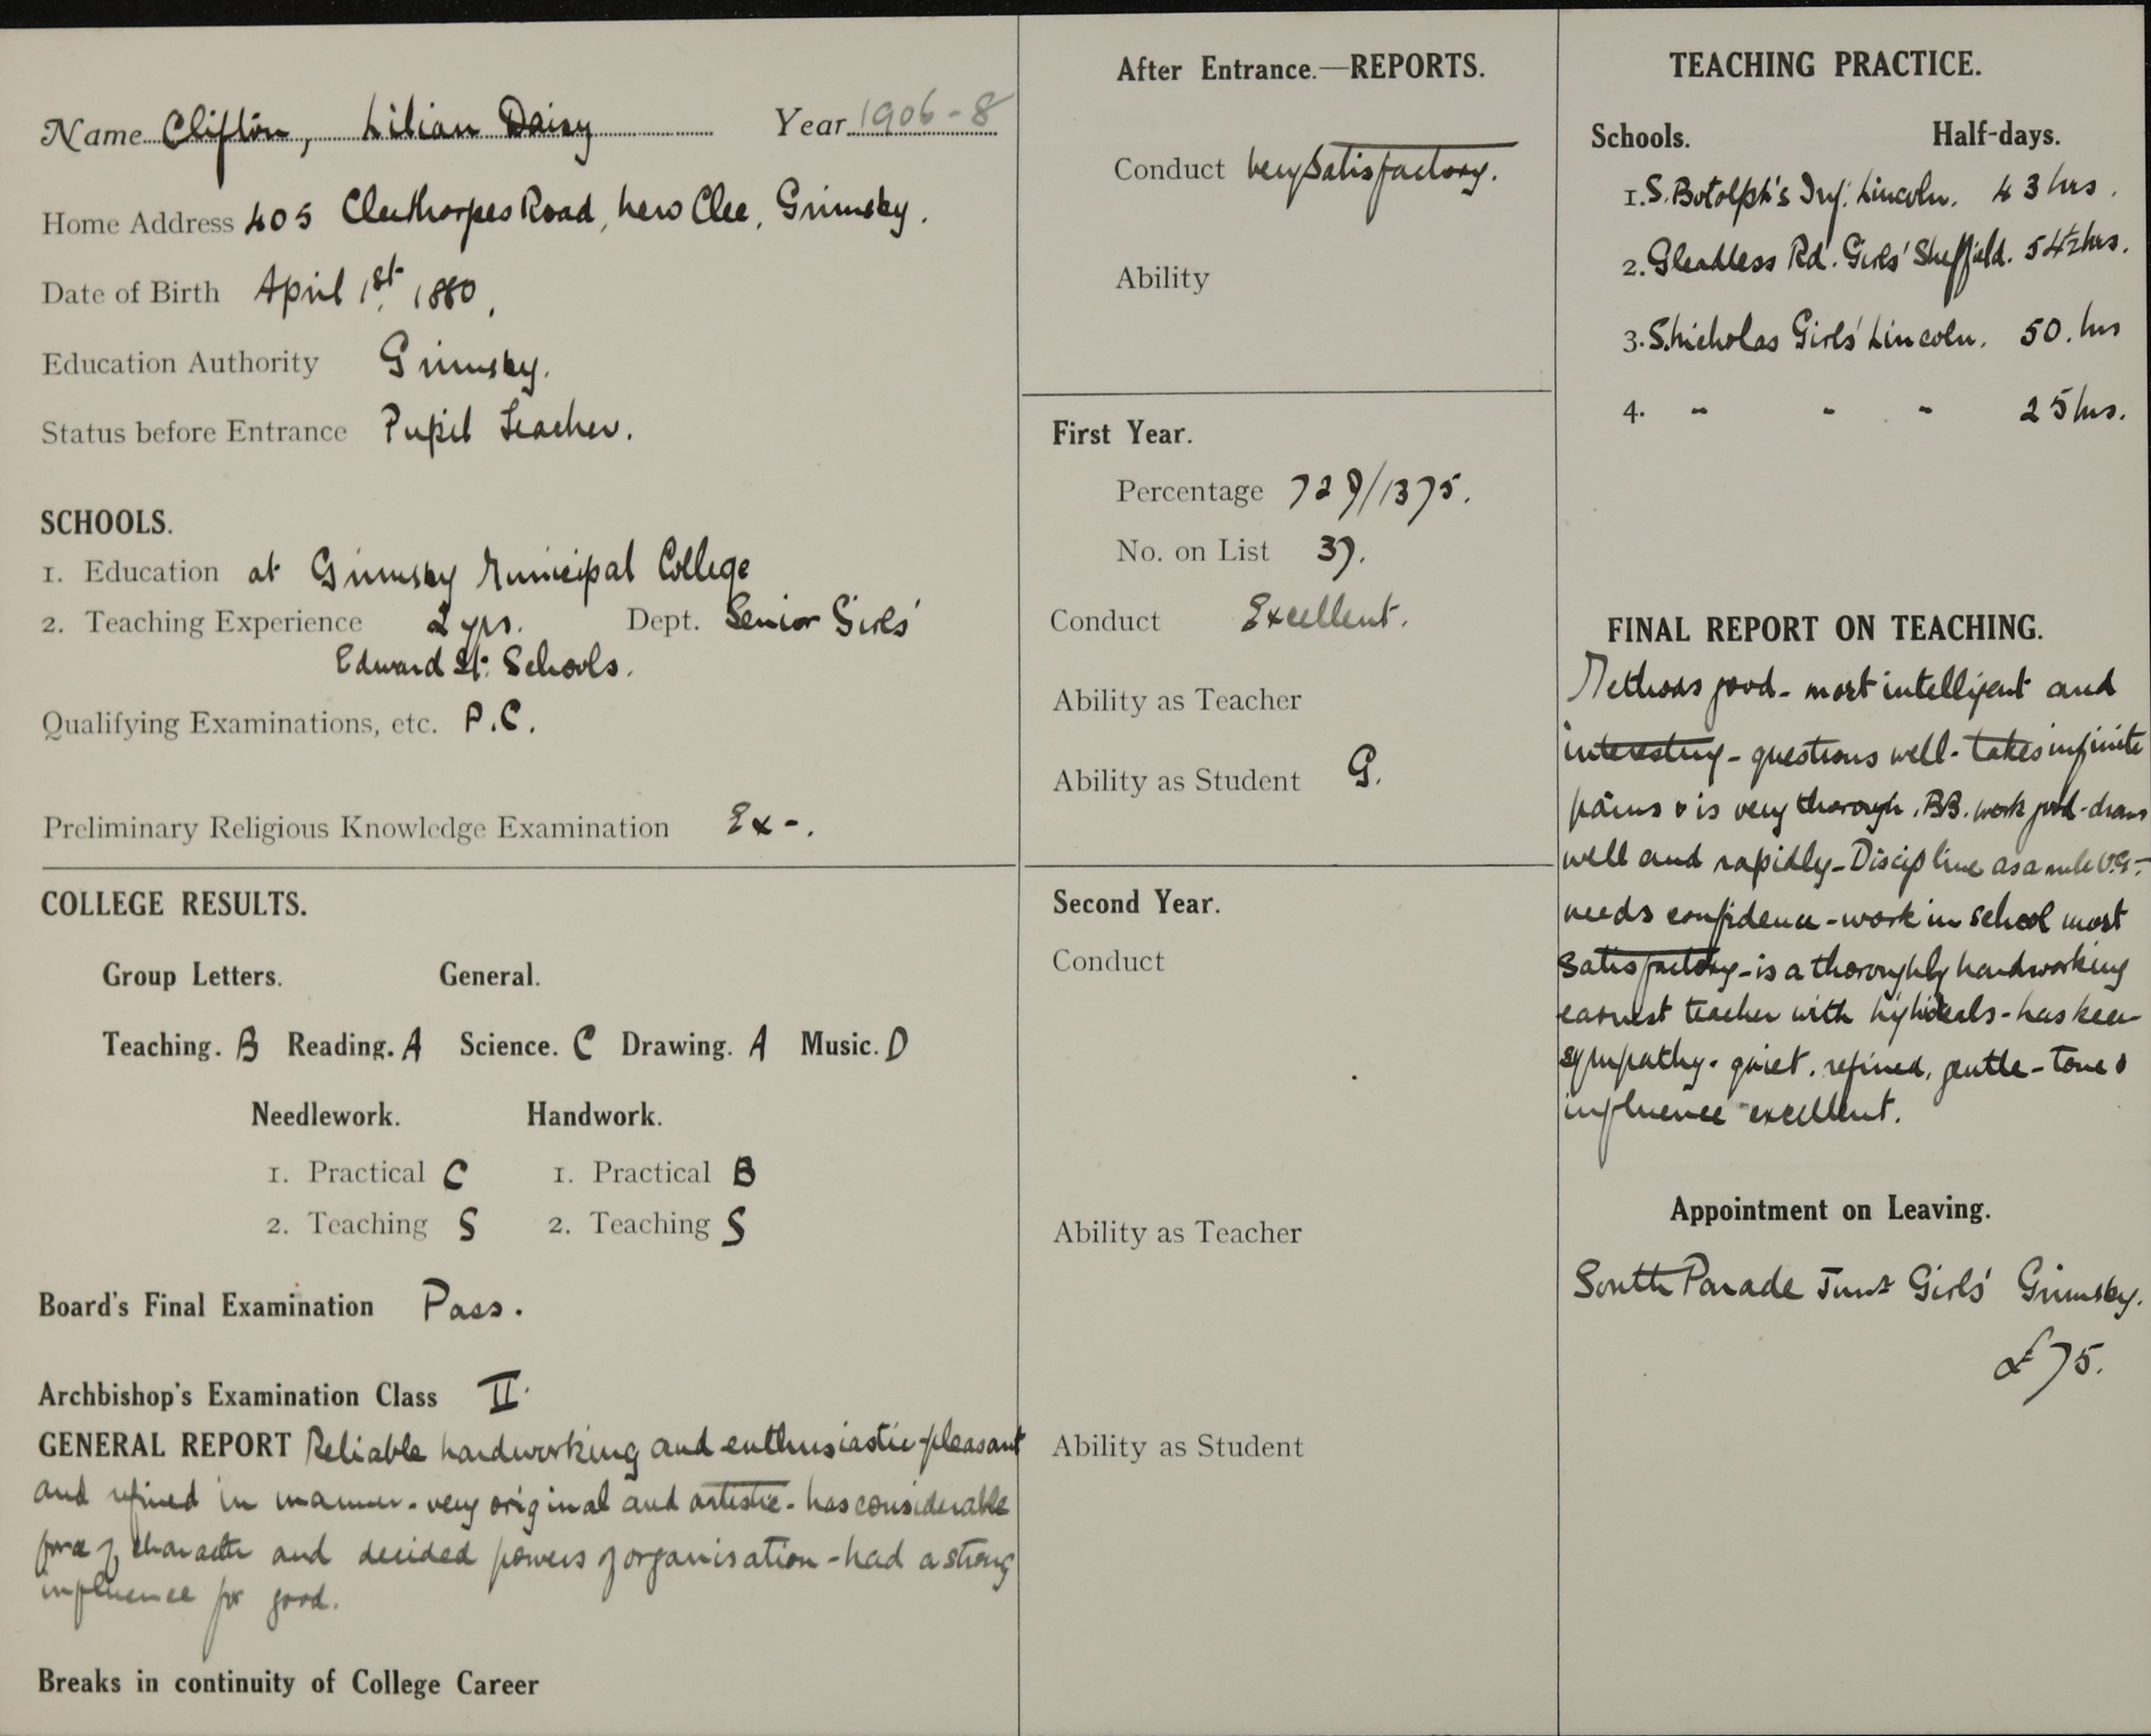 Name Clifton, Lilian Daisy Year 1906-8
Home Address 405 Cleethorpes Road, New Clee, Grimsby.
Date of Birth April 1st. 1880.
Education Authority Grimsby.
Status before Entrance Pupil Teacher.
SCHOOLS.
1. Education at Grimsby Municipal College
2. Teaching Experience 2 yrs. Dept. Senior Girls'
Edward St. Schools.
Qualifying Examinations, etc. P.C.
Preliminary Religious Knowledge Examination Ex-.
COLLEGE RESULTS.
Group Letters. General.
Teaching. B Reading. A Science. C Drawing. A Music. D
Needlework. Handwork.
1. Practical C 1. Practical B
2. Teaching S 2. Teaching S
Board's Final Examination Pass.
Archbishop's Examination Class II.
GENERAL REPORT Reliable hardworking and enthusiastic-pleasant
and refined in manner - very original and artistic - has considerable
force of character and decided powers of organisation - had a strong
influence for good.
Breaks in continuity of College Career
After Entrance.—REPORTS.
Conduct Very Satisfactory.
Ability
First Year.
Percentage 729/1375.
No. on List 37.
Conduct Excellent.
Ability as Teacher
Ability as Student G.
Second Year.
Conduct
Ability as Teacher
Ability as Student
TEACHING PRACTICE.
Schools. Half-days.
1. S. Botolph's Inf. Lincoln. 43 hrs.
2. Gleadless Rd. Girls' Sheffield. 54½ hrs.
3. S. Nicholas Girls' Lincoln. 50. hrs
4. - - - 25 hrs.
FINAL REPORT ON TEACHING.
Methods good - most intelligent and
interesting - questions well - takes infinite
pains & is very thorough. BB. work good - draws
well and rapidly - Discipline as a rule V.G. -
needs confidence - work in school most
satisfactory - is a thoroughly hardworking
earnest teacher with high ideals - has keen
sympathy - quiet, refined, gentle - tone &
influence excellent.
Appointment on Leaving.
South Parade Junr Girls' Grimsby.
£75.